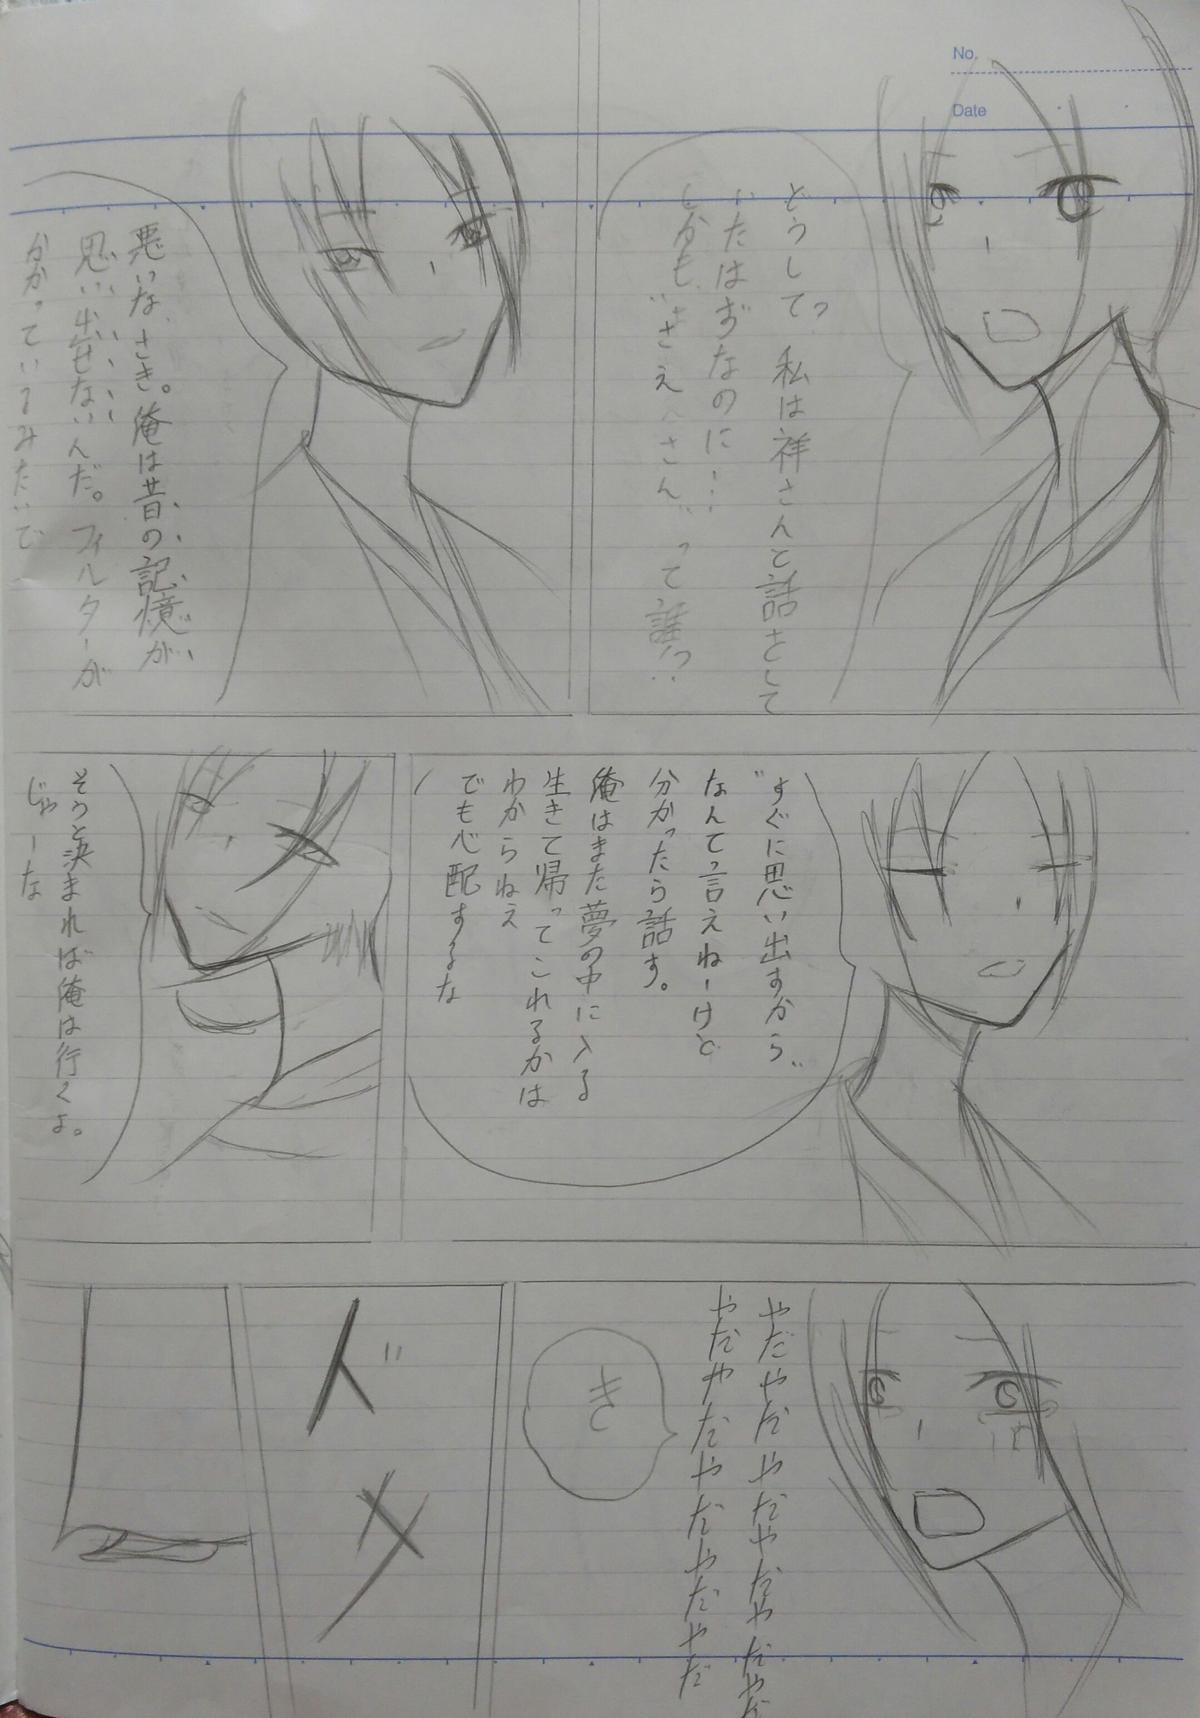 No.
Date
どうして? 私は祥さんと話をして
いたはずなのに…
しかも"さえさん"って誰!?
悪いなさき。俺は昔の記憶が
思い出せないんだ。フィルターが
かかっているみたいで
"すぐに思い出すから"
なんて言えねーけど
分かったら話す。
俺はまた夢の中に入る
生きて帰ってこれるかは
わからねえ
でも心配するな
そうと決まれば俺は行くよ。
じゃーな
やだやだやだやだやだやだ
やだやだやだやだやだ
き
ドメ